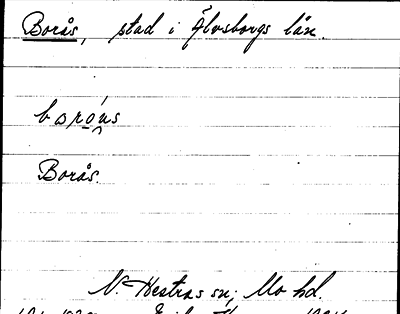 Borås, stad i Älvsborgs län.
Borås.
N. Hestras sn; Mo hd.